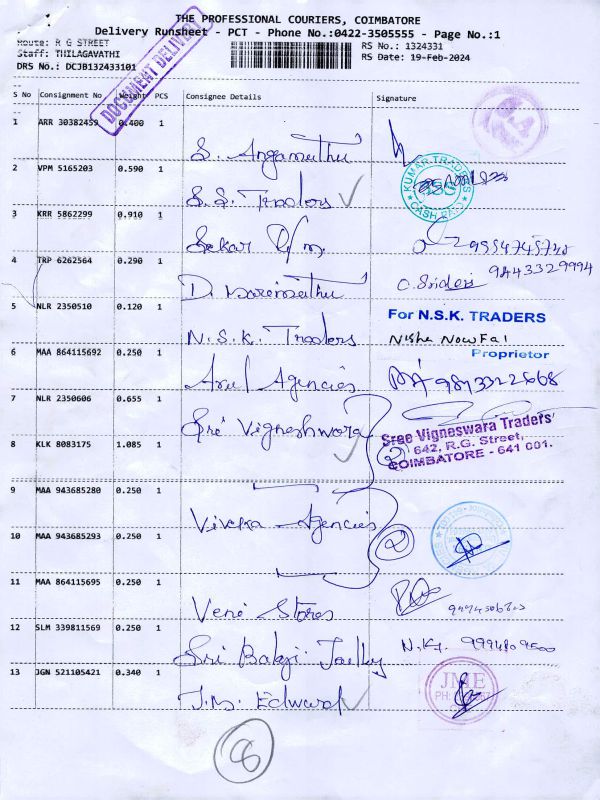 THE PROFESSIONAL COURIERS, COIMBATORE
Delivery Runsheet - PCT - Phone No.:0422-3505555 - Page No.:1
Route: R G STREET
Staff: THILAGAVATHI
DRS No.: DCJB132433101
RS No.: 1324331
RS Date: 19-Feb-2024
DOCUMENT DELIVERY
S No Consignment No Weight PCS Consignee Details Signature
1 ARR 30382459 0.400 1 S. Angamuthu
2 VPM 5165203 0.590 1 S.S. Traders
KUMAR TRADERS
CASH PAID
3 KRR 5862299 0.910 1 Sekar
4 TRP 6262564 0.290 1 D. Marimuthu
9443329994
5 NLR 2350510 0.120 1 N.S.K. Traders
For N.S.K. TRADERS
Nisha Nowfal
Proprietor
6 MAA 864115692 0.250 1 Arul Agencies
7 NLR 2350606 0.655 1 Sri Vigneshwara
8 KLK 8083175 1.085 1
2
Sree Vigneswara Traders
642, R.G. Street,
COIMBATORE - 641 001.
9 MAA 943685280 0.250 1 Viveka Agencies
10 MAA 943685293 0.250 1
2
11 MAA 864115695 0.250 1 Veni Stores
12 SLM 339811569 0.250 1 Sri Balaji
13 JGN 521105421 0.340 1 J.M. Edward
JME
8